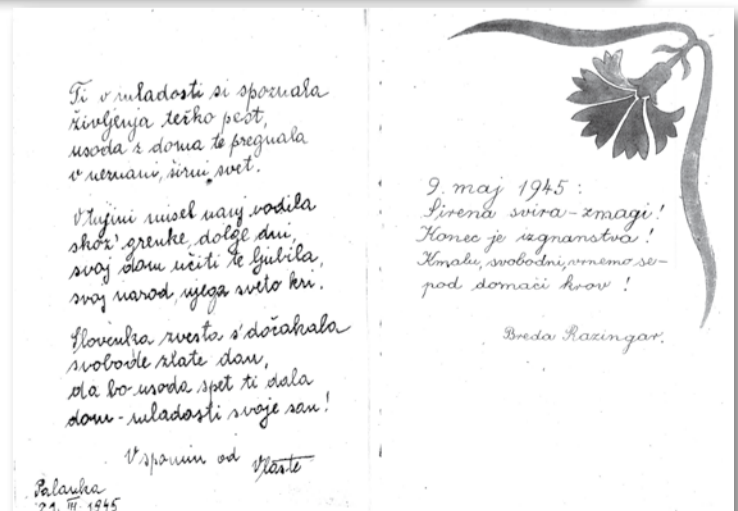 Ti v mladosti si spoznala
življenja težko pest,
usoda z doma te pregnala
v neznani, širni svet.
V tujini misel nanj vodila
skoz' grenke, dolge dni,
svoj dom učiti te ljubila,
svoj narod, njega sveto kri.
Slovenka zvesta s' dočakala
svobode zlate dan,
da bo usoda spet ti dala
dom - mladosti svoje san!
V spomin od Vlaste
Palanka
21. III. 1945
9. maj 1945:
Sirena svira - zmagi!
Konec je izgnanstva!
Kmalu, svobodni, vrnemo se -
pod domači krov!
Breda Razingar.